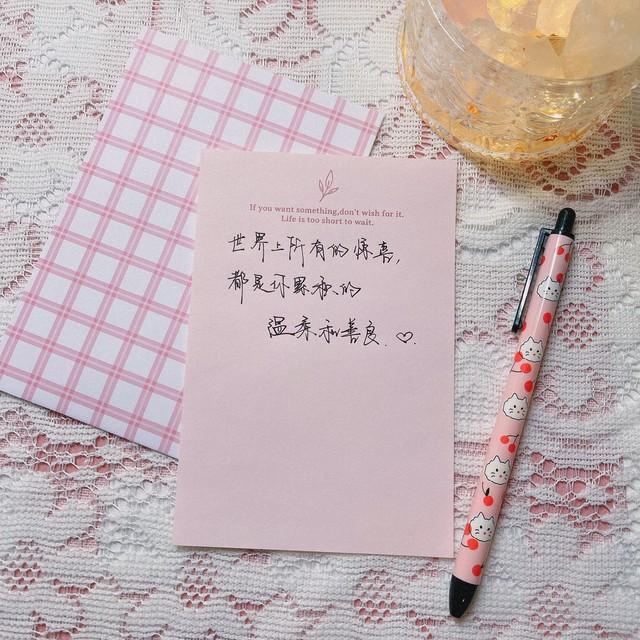 If you want something,don't wish for it.
Life is too short to wait.
世界上所有的惊喜，
都是你累积的
温柔和善良.♡.